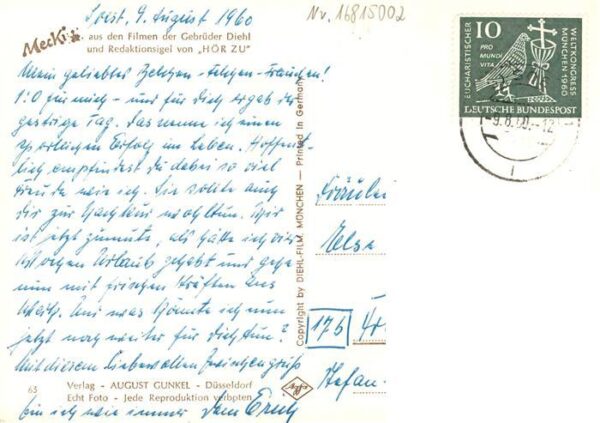 Soest, 9. August 1960
Nr. 16815002
Mecki
aus den Filmen der Gebrüder Diehl
und Redaktionsigel von „HÖR ZU"
Mein geliebtes
1:0 für mich – und für Dich ergab der
gestrige Tag. Das nenne ich einen
sportlichen Erfolg im Leben. Hoffent-
lich empfindest Du dabei so viel
Freude wie ich. Sie sollte auch
Dir zur Nachkur wohltun. Mir
ist jetzt zumute, als hätte ich vier
Wochen Urlaub gehabt und gehe
nun mit frischen Kräften ans
Werk. Und was könnte ich nun
jetzt noch weiter für Dich tun?
Mit diesem liebevollen Zwischengruß
63
Verlag - AUGUST GUNKEL - Düsseldorf
Echt Foto - Jede Reproduktion verboten
bin ich wie immer Dein Erich
Copyright by DIEHL-FILM, MÜNCHEN — Printed in Germany
Agfa
10
PRO MUNDI VITA
EUCHARISTISCHER
WELTKONGRESS
MÜNCHEN 1960
DEUTSCHE BUNDESPOST
-9.8.60.-12
Fräulein
Elsa
17b
Fr
Stefan-